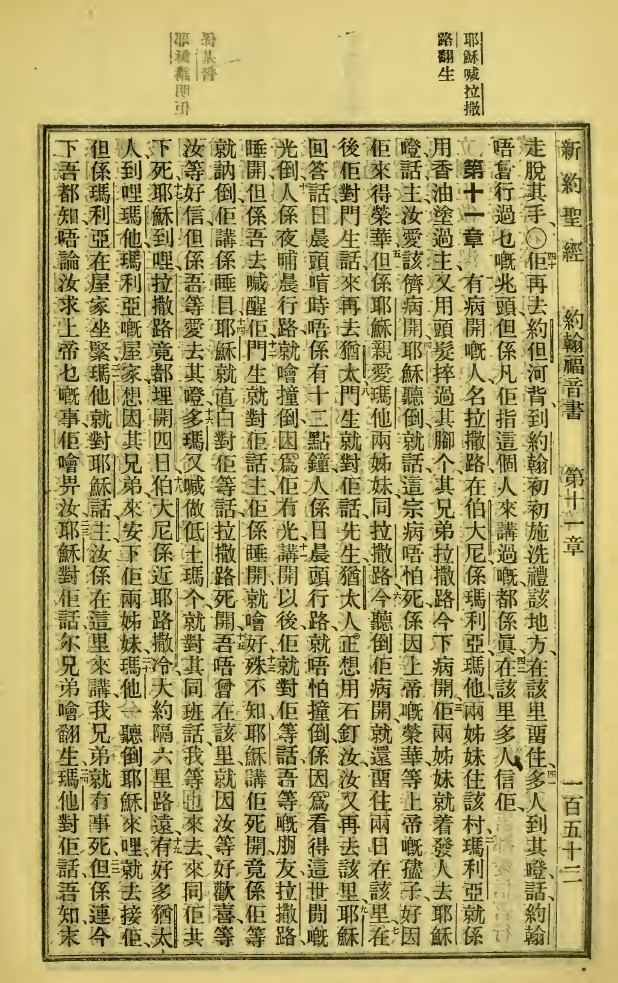 耶穌喊拉撒
路翻生
新約聖經 約翰福音書 第十一章 一百五十二
走脫其手、〇佢再去約但河背到約翰初初施洗禮該地方、在該里畱住、多人到其嶝話、約翰
唔曾行過乜嘅兆頭、但係凡佢指這個人來講過嘅都係眞、在該里多人信佢、
第十一章 有病開嘅人名拉撒路、在伯大尼、係瑪利亞瑪他兩姊妹住該村、瑪利亞就係
用香油塗過主、又用頭髮捽過其腳个、其兄弟拉撒路今下病開、佢兩姊妹就着發人去耶穌
嶝話、主、汝愛該儕病開、耶穌聽倒就話、這宗病唔怕死、係因上帝嘅榮華、等上帝嘅孻子好因
佢來得榮華、但係耶穌親愛瑪他兩姊妹同拉撒路、今聽倒佢病開、就還畱住兩日在該里、在
後佢對門生話、來再去猶太、門生就對佢話、先生、猶太人正想用石釘汝、汝又再去該里、耶穌
回答話、日晨頭啀時唔係有十二點鐘、人係日晨頭行路就唔怕撞倒、係因爲看得這世間嘅
光倒、人係夜晡晨行路就噲撞倒、因爲佢冇光、講開以後、佢就對佢等話、吾等嘅朋友拉撒路
睡開、但係吾去喊醒佢、門生就對佢話、主、佢係睡開就噲好、殊不知耶穌講佢死開、竟係佢等
就訥倒佢講係睡目、耶穌就直白對佢等話、拉撒路死開、吾唔曾在該里、就因汝等好歡喜、等
汝等好信、但係吾等愛去其嶝、多瑪又喊做低土瑪个、就對其同班話、我等也來去、來同佢共
下死、耶穌到哩、拉撒路竟都埋開四日、伯大尼係近耶路撒冷、大約隔六里路遠、有好多猶太
人到哩瑪他瑪利亞嘅屋家、想因其兄弟來安下佢兩姊妹、瑪他一聽倒耶穌來哩、就去接佢、
但係瑪利亞在屋家坐緊、瑪他就對耶穌話、主、汝係在這里來講、我兄弟就冇事死、但係連今
下吾都知、唔論汝求上帝乜嘅事、佢噲畀汝、耶穌對佢話、尔兄弟噲翻生、瑪他對佢話、吾知末